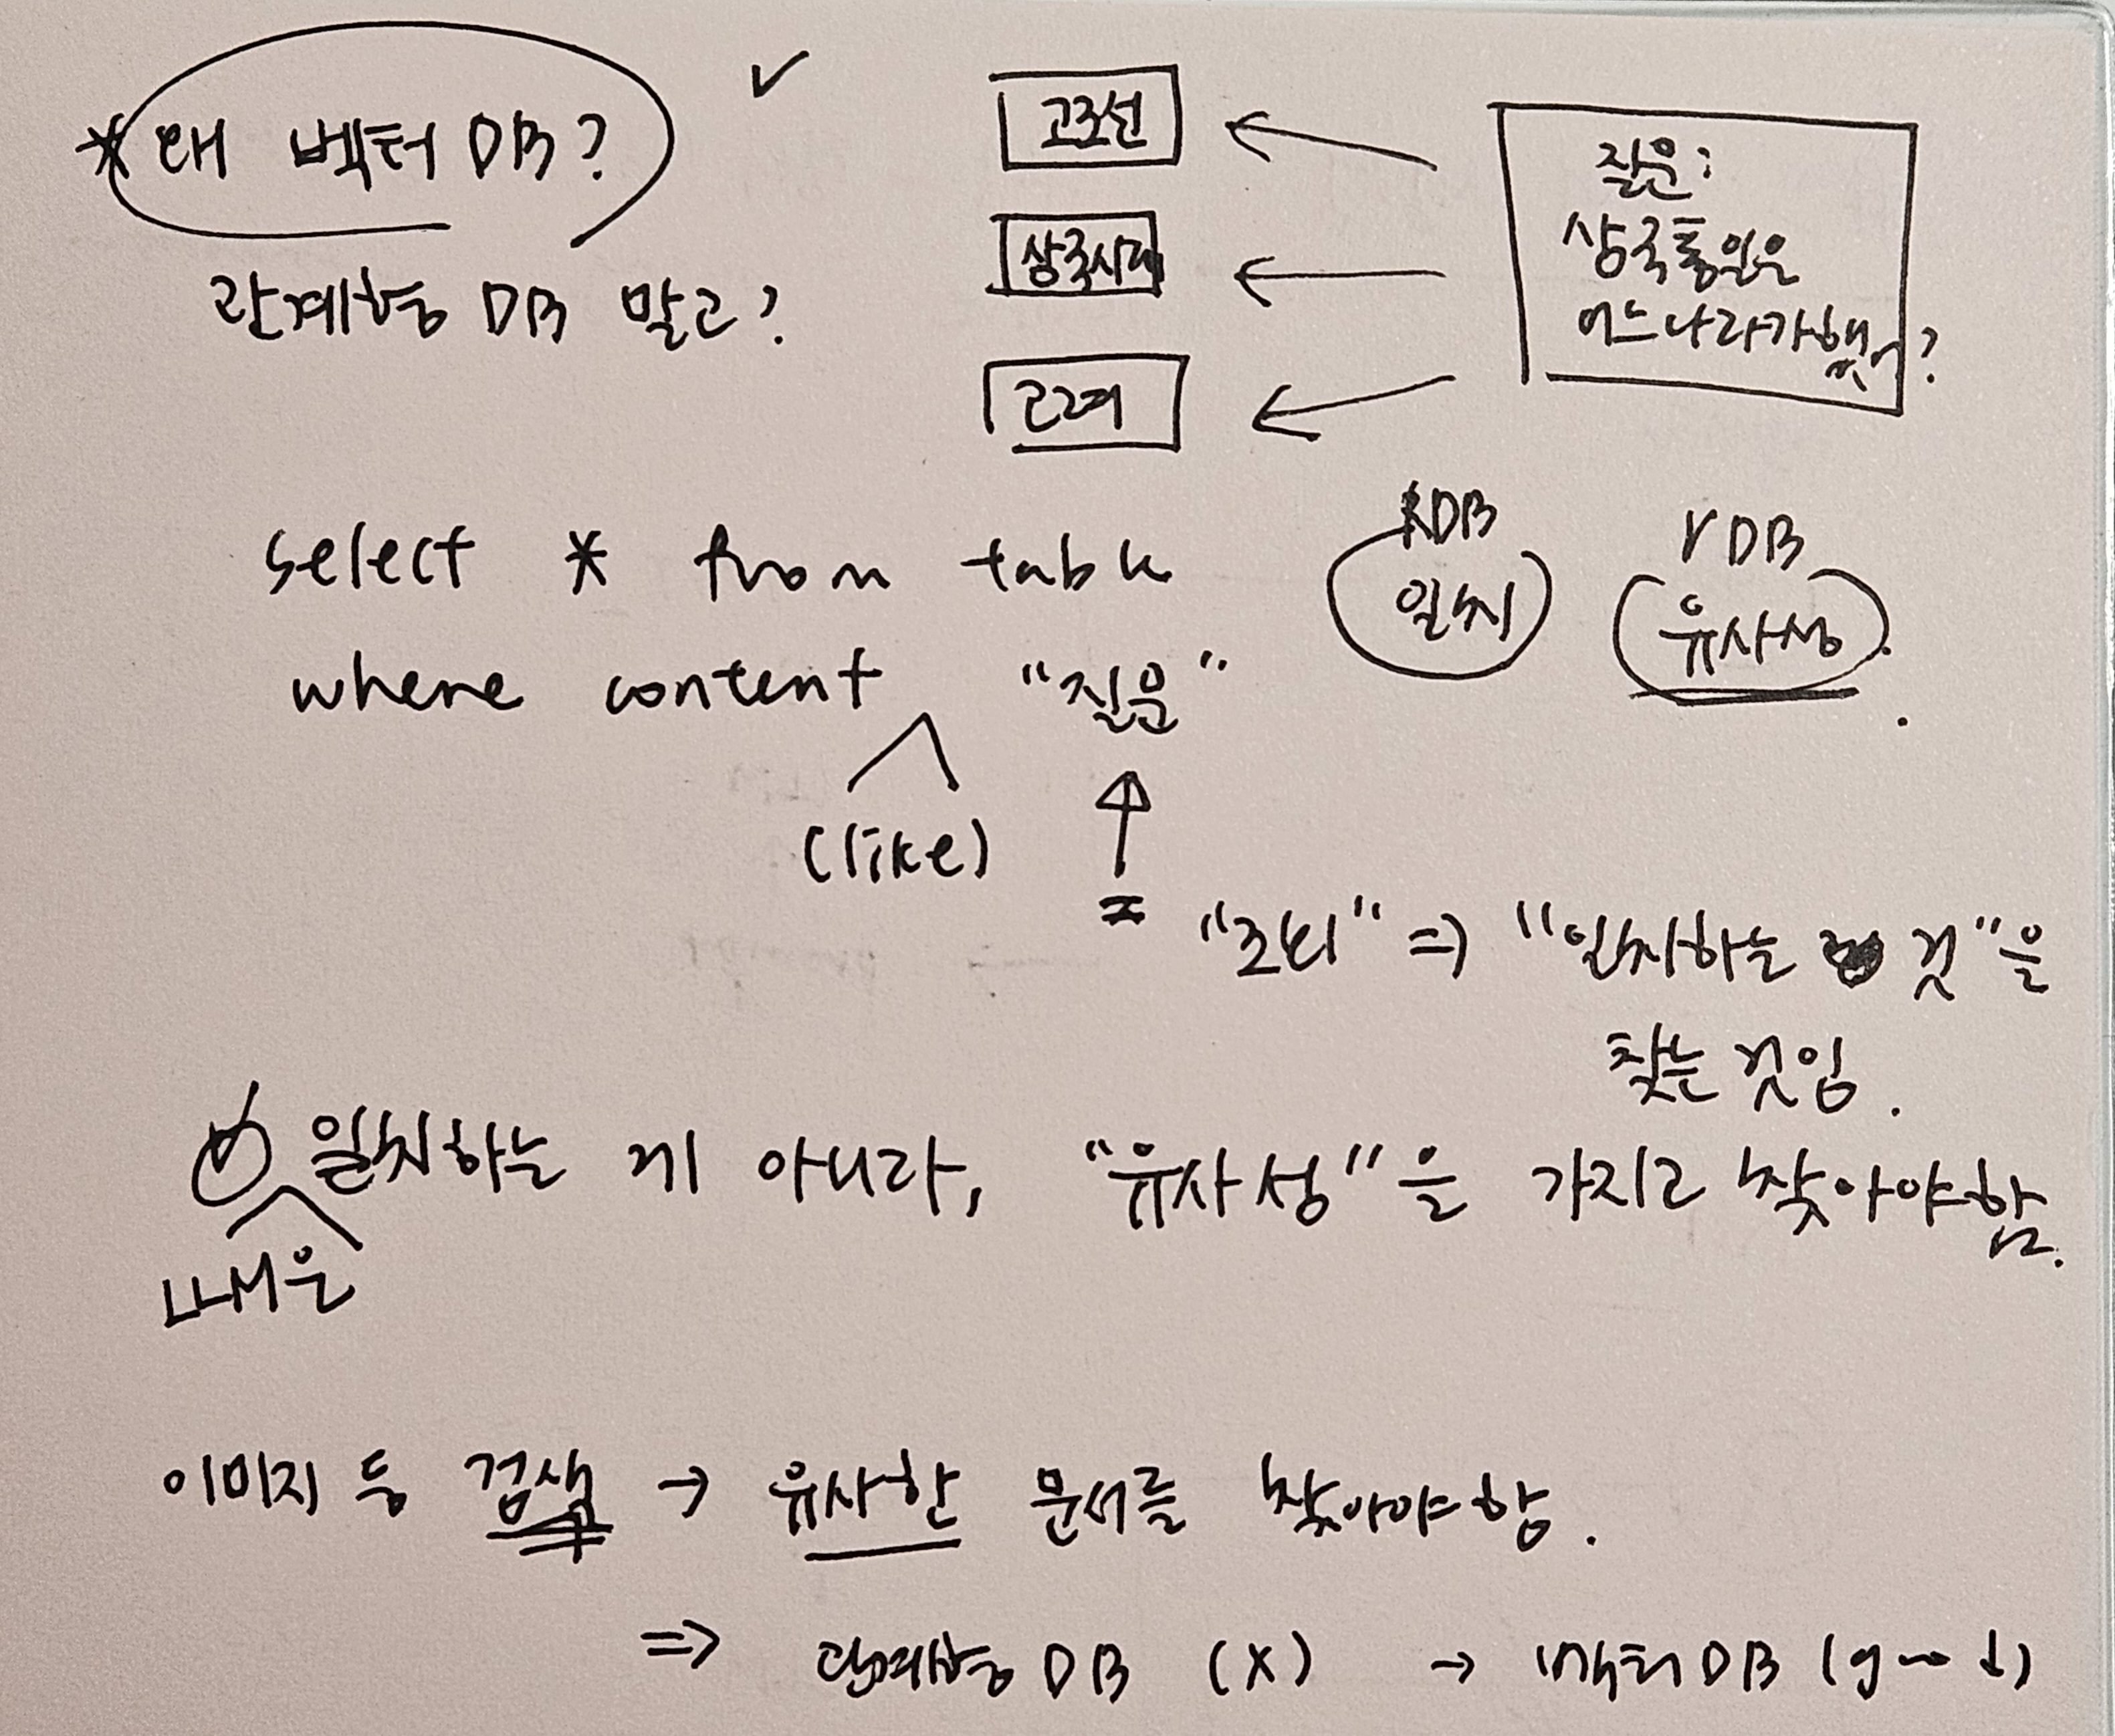 * 왜 벡터 DB?
관계형 DB 말고?
고조선
삼국시대
고려
질문:
삼국통일은
어느나라가했어?
select * from table
where content "질문"
(like)
=
RDB
일치
VDB
유사성.
"조회" => "일치하는 것"을
찾는 것임.
일치하는 게 아니라, "유사성"을 가지고 찾아야함.
내용
이미지 등 검색 → 유사한 문서를 찾아야함.
=> 관계형 DB (X) → 벡터 DB (good)